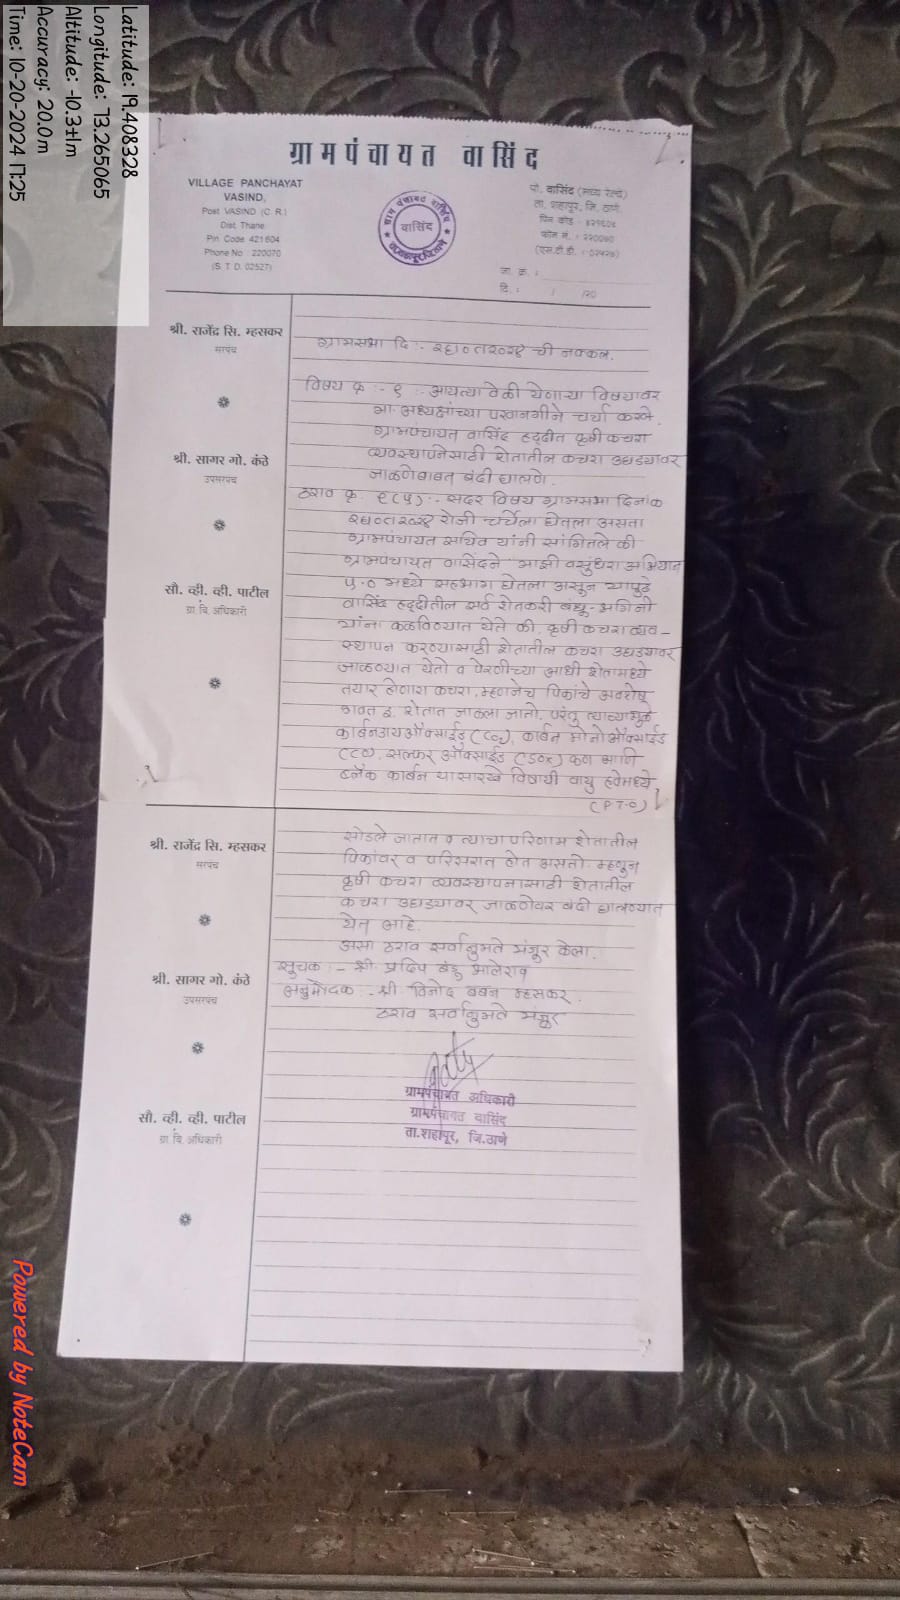 Latitude: 19.408328
Longitude: 73.265065
Altitude: -10.3±1m
Accuracy: 20.0m
Time: 10-20-2024 17:25
ग्रामपंचायत वासिंद
VILLAGE PANCHAYAT
VASIND,
Post VASIND (C. R.)
Dist. Thane
Pin. Code 421604
Phone No. 220070
(S. T. D. 02527)
ग्राम पंचायत वासिंद
वासिंद
पो. वासिंद (मध्य रेल्वे)
ता. शहापूर, जि. ठाणे.
पिन कोड : ४२१६०४
फोन नं. : २२००७०
(एस.टी.डी. : ०२५२७)
जा. क्र. :
दि. : / /२०
श्री. राजेंद्र सि. म्हसकर
सरपंच
श्री. सागर गो. कंठे
उपसरपंच
सौ. व्ही. व्ही. पाटील
ग्रा. वि. अधिकारी
ग्रामसभा दि :- ची नक्कल.
विषय क्र :- ९ :- आयत्या वेळी येणाऱ्या विषयावर
मा. अध्यक्षांच्या परवानगीने चर्चा करणे.
ग्रामपंचायत वासिंद हद्दीत कृषी कचरा
व्यवस्थापनेसाठी शेतातील कचरा उघड्यावर
जाळणेबाबत बंदी घालणे.
ठराव क्र. ९(५) :- सदर विषय ग्रामसभा दिनांक
रोजी चर्चेला घेतला असता
ग्रामपंचायत सचिव यांनी सांगितले की
ग्रामपंचायत वासिंदने माझी वसुंधरा अभियान
५.० मध्ये सहभाग घेतला असून यापुढे
वासिंद हद्दीतील सर्व शेतकरी बंधू-भगिनी
यांना कळविण्यात येते की, कृषी कचरा व्यव-
स्थापन करण्यासाठी शेतातील कचरा उघड्यावर
जाळण्यात येतो व पेरणीच्या आधी शेतामध्ये
तयार होणारा कचरा, म्हणजेच पिकांचे अवशेष
गवत इ. शेतात जाळला जातो. परंतु त्याच्यामुळे
कार्बनडायऑक्साईड (CO₂), कार्बन मोनोऑक्साईड
(CO), सल्फर ऑक्साईड (SOx) कण आणि
ब्लॅक कार्बन यासारखे विषारी वायु हवेमध्ये
(P.T.O)
श्री. राजेंद्र सि. म्हसकर
सरपंच
श्री. सागर गो. कंठे
उपसरपंच
सौ. व्ही. व्ही. पाटील
ग्रा. वि. अधिकारी
सोडले जातात व त्याचा परिणाम शेतातील
पिकांवर व परिसरात होत असतो. म्हणून
कृषी कचरा व्यवस्थापनासाठी शेतातील
कचरा उघड्यावर जाळणेवर बंदी घालण्यात
येत आहे.
असा ठराव सर्वानुमते मंजूर केला.
सुचक :- श्री. प्रदिप बंडू भालेराव
अनुमोदक :- श्री विनोद बबन म्हसकर.
ठराव सर्वानुमते मंजूर
ग्रामपंचायत अधिकारी
ग्रामपंचायत वासिंद
ता.शहापूर, जि.ठाणे
Powered by NoteCam